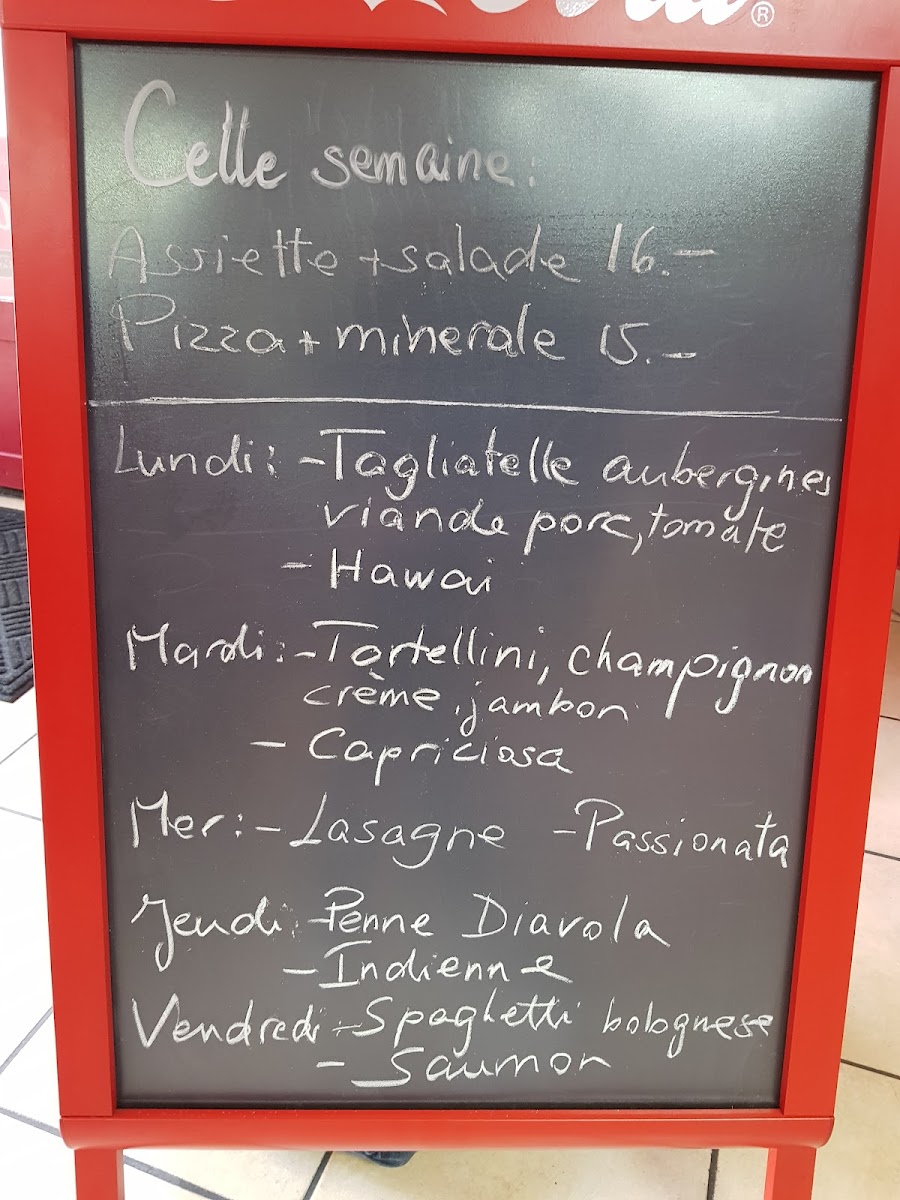 ®
Cette semaine:
Assiette + salade 16.-
Pizza + minerale 15.-
Lundi: - Tagliatelle aubergines
viande porc, tomate
- Hawai
Mardi: - Tortellini, champignon
crème, jambon
- Capriciosa
Mer: - Lasagne - Passionata
Jeudi: - Penne Diavola
- Indienne
Vendredi: - Spaghetti bolognese
- Saumon